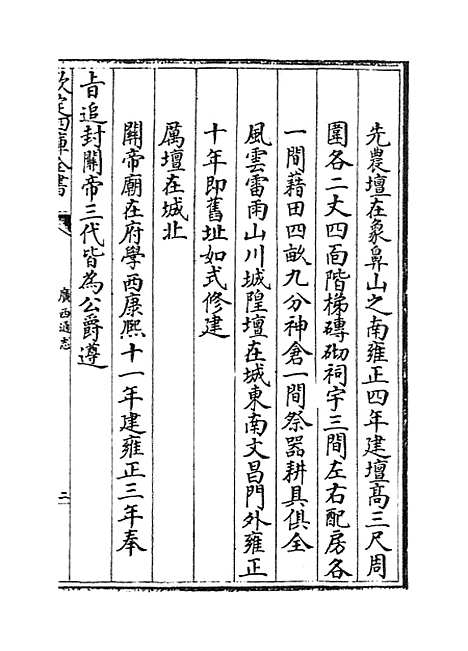 先農壇在象鼻山之南雍正四年建壇高三尺周
圍各二丈四面階梯磚砌祠宇三間左右配房各
一間藉田四畝九分神倉一間祭器耕具俱全
風雲雷雨山川城隍壇在城東南文昌門外雍正
十年即舊址如式修建
厲壇在城北
關帝廟在府學西康熙十一年建雍正三年奉
旨追封關帝三代皆為公爵遵
欽定四庫全書
廣西通志